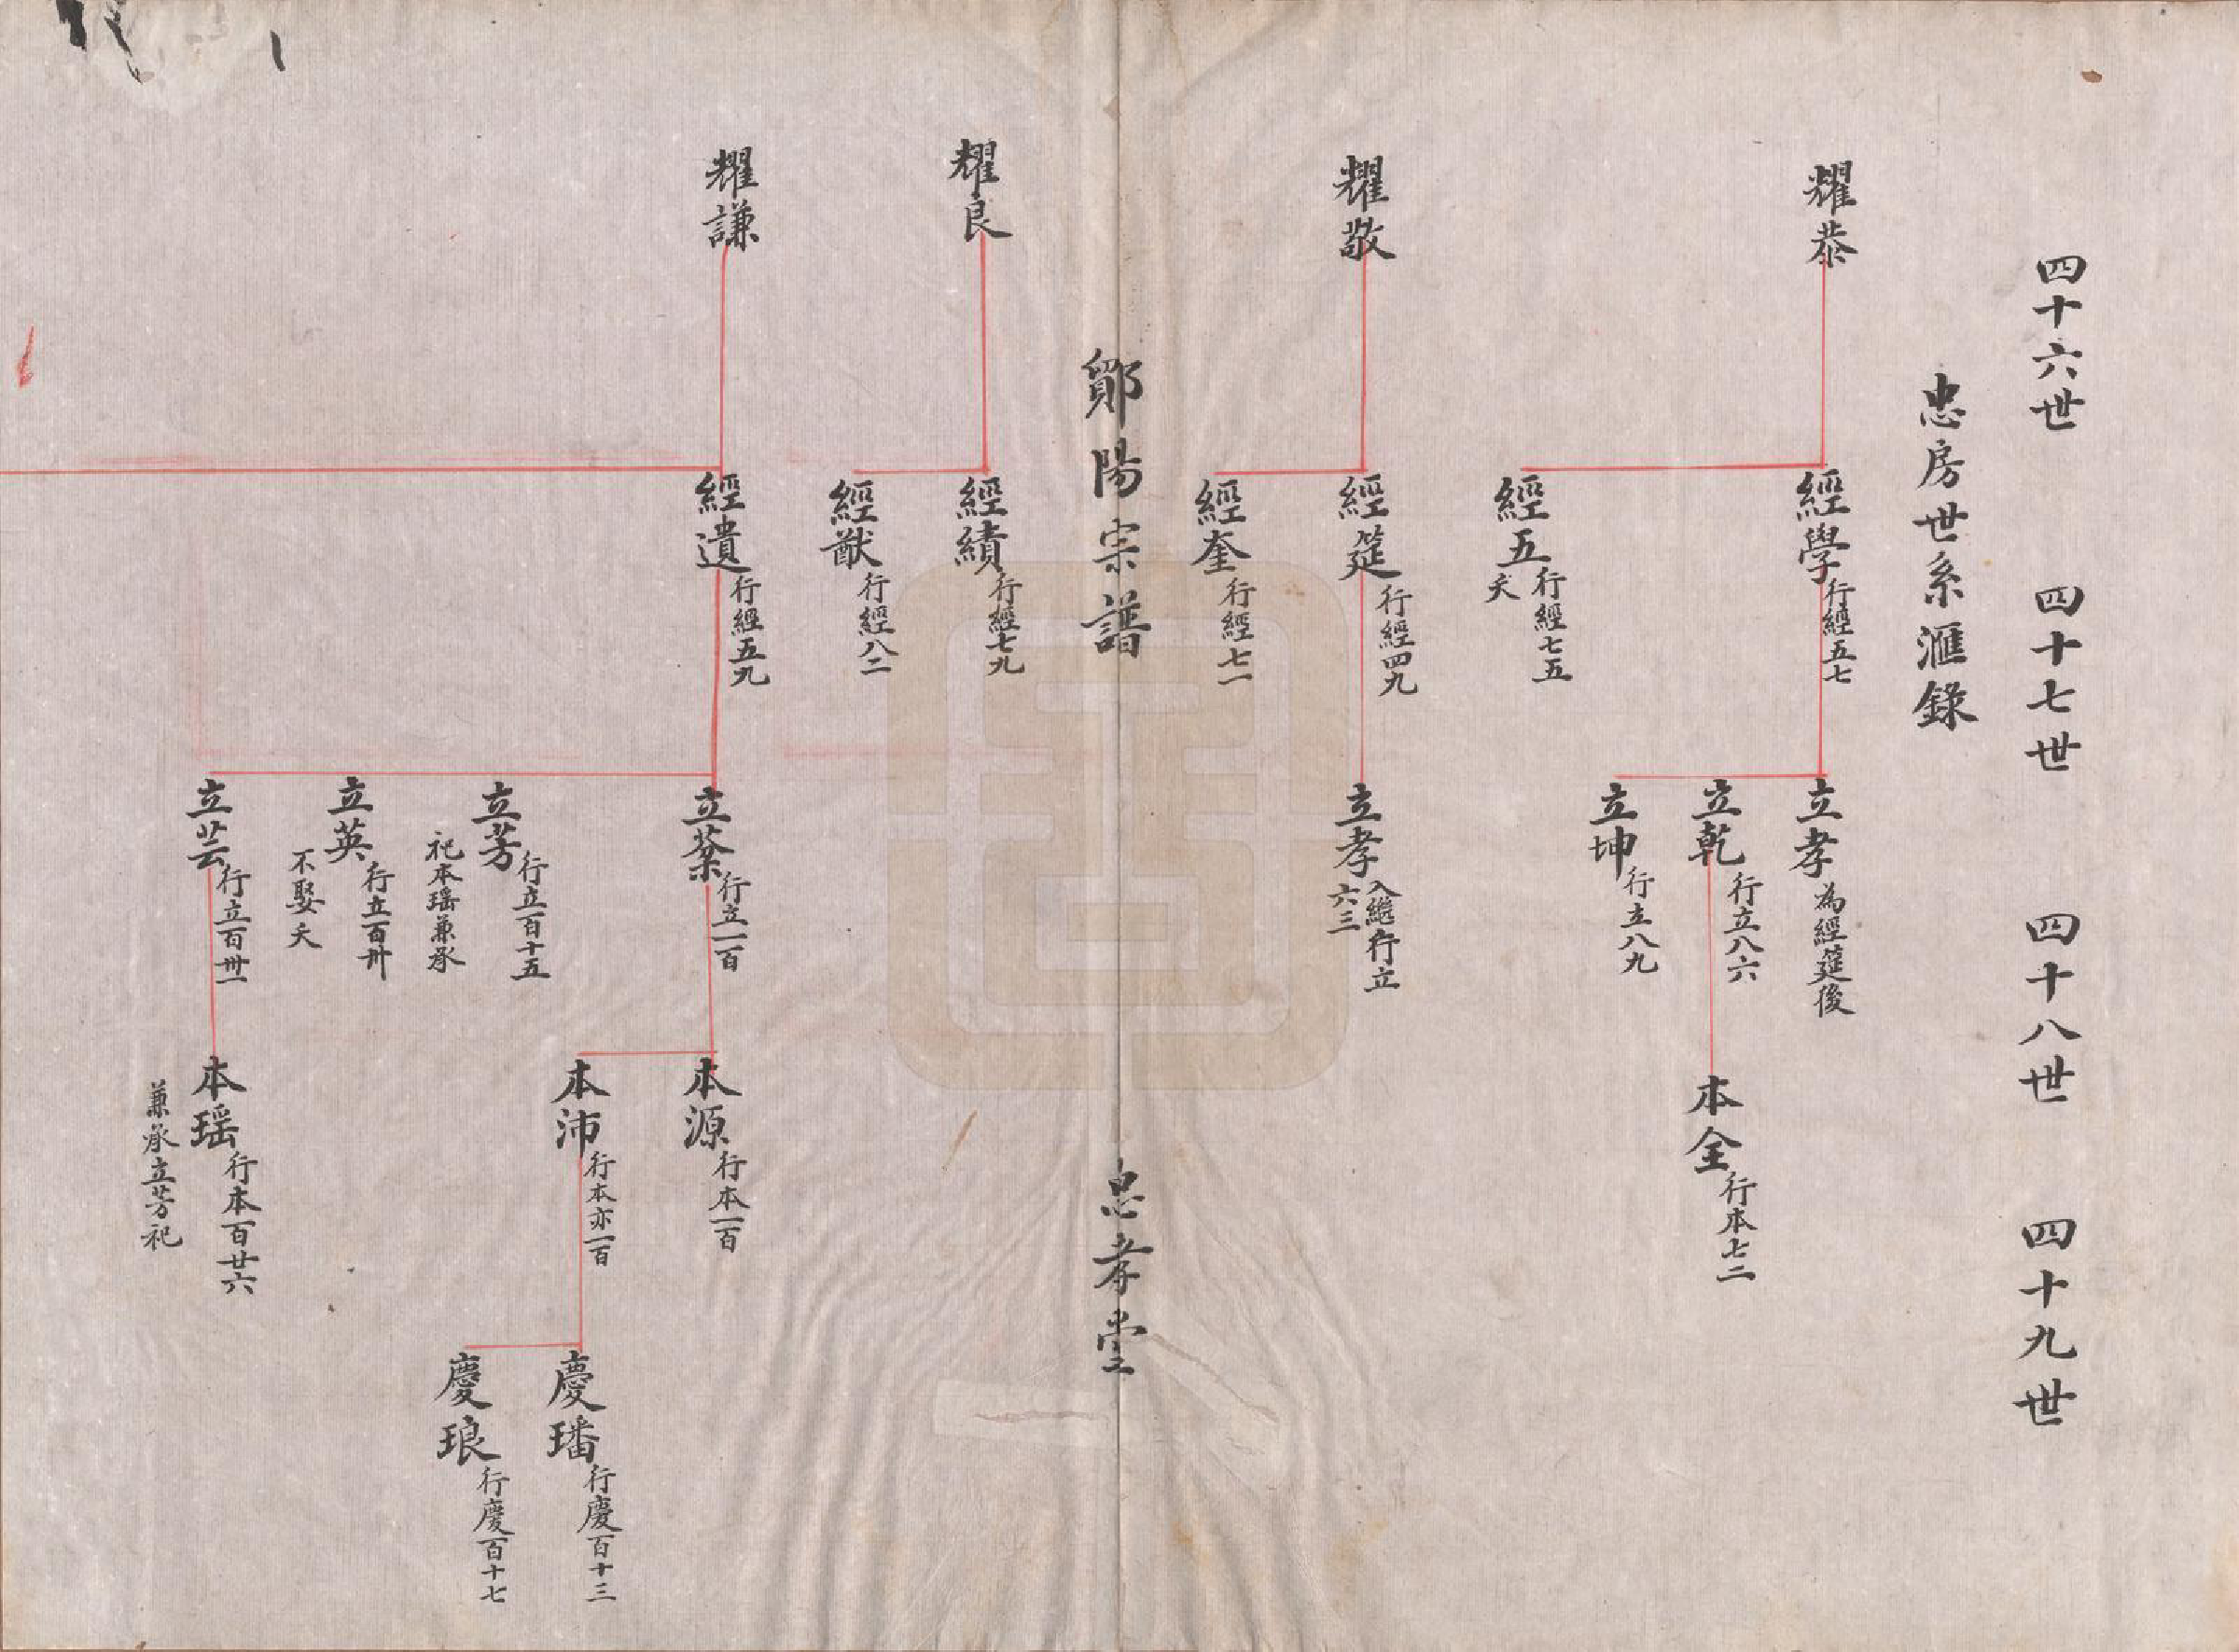 四十六世
四十七世
四十八世
四十九世
忠房世系滙錄
耀恭
經學
行經五七
經五
行經七五
夭
立孝
為經筵後
立乾
行立八六
立坤
行立八九
本全
行本七二
耀敬
經筵
行經四九
經奎
行經七一
立孝
入繼行立
六三
鄭陽宗譜
忠孝堂
耀良
經績
行經七九
經猷
行經八二
耀謙
經遺
行經五九
立棻
行立一百
立芳
行立百十五
祀本瑶兼承
立英
行立百卅
不娶夭
立芸
行立百卅一
本源
行本一百
本沛
行本亦一百
本瑶
行本百廿六
兼承立芳祀
慶璠
行慶百十三
慶琅
行慶百十七